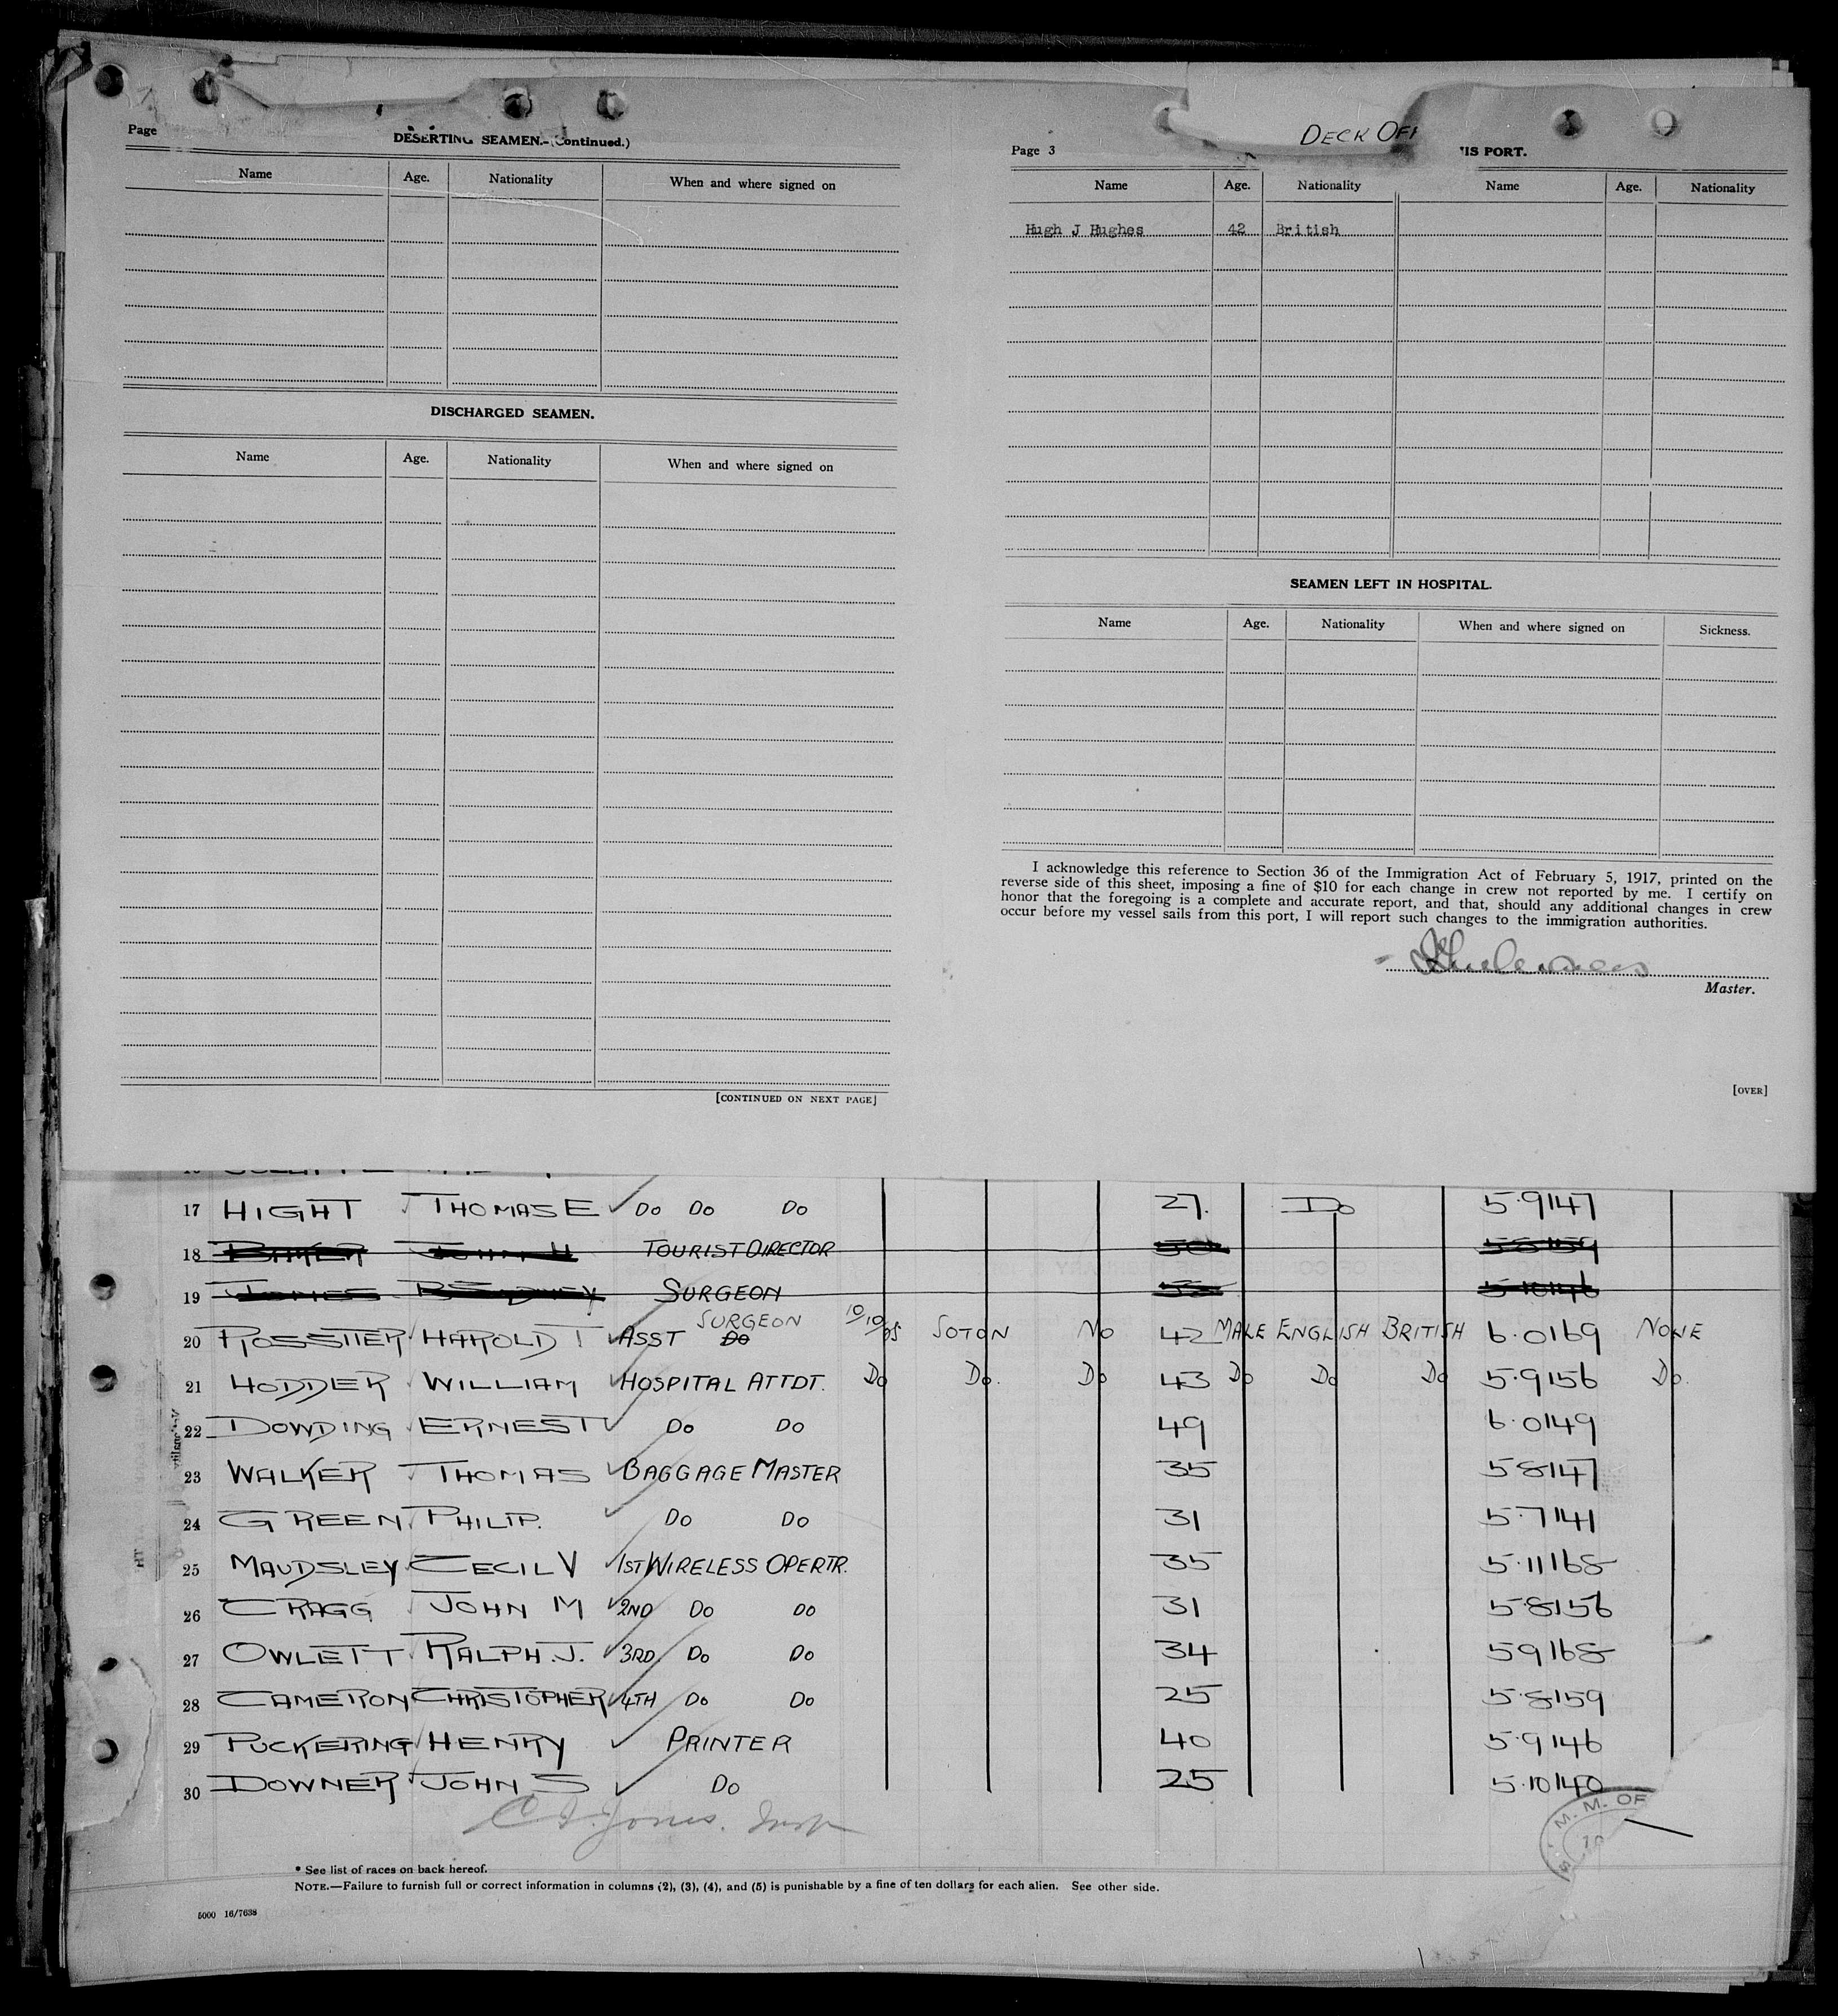 Page
DESERTING SEAMEN.—(Continued.)
Name Age. Nationality When and where signed on
DISCHARGED SEAMEN.
Name Age. Nationality When and where signed on
[CONTINUED ON NEXT PAGE]
DECK OFF
Page 3 HIS PORT.
Name Age. Nationality Name Age. Nationality
Hugh J Hughes 42 British
SEAMEN LEFT IN HOSPITAL.
Name Age. Nationality When and where signed on Sickness.
I acknowledge this reference to Section 36 of the Immigration Act of February 5, 1917, printed on the
reverse side of this sheet, imposing a fine of $10 for each change in crew not reported by me. I certify on
honor that the foregoing is a complete and accurate report, and that, should any additional changes in crew
occur before my vessel sails from this port, I will report such changes to the immigration authorities.
Master.
[OVER]
17 HIGHT THOMAS E Do Do Do 27. Do 5·9 147
18 BAKER JOHN H TOURIST DIRECTOR 50 5 8 159
19 JONES SURGEON 5·10 146
SURGEON
20 ROSSITER HAROLD T ASST Do 10/10/35 SOTON No 42 MALE ENGLISH BRITISH 6·0 169 NONE
21 HODDER WILLIAM HOSPITAL ATTDT. Do Do. Do 43 Do Do Do 5·9 156 Do.
22 DOWDING ERNEST Do Do 49 6·0 149
23 WALKER THOMAS BAGGAGE MASTER 35 5 8 147
24 GREEN PHILIP. Do Do 31 5·7 141
25 MAUDSLEY CECIL V 1ST WIRELESS OPERTR. 35 5·11 168
26 CRAGG JOHN M 2ND Do Do 31 5·8 156
27 OWLETT RALPH. J. 3RD Do Do 34 5 9 168
28 CAMERON CHRISTOPHER 4TH Do Do 25 5·8 159
29 PUCKERING HENRY PRINTER 40 5·9 146
30 DOWNER JOHN S Do 25 5·10 140
C. D. Jones. Insp
M. M. OF
* See list of races on back hereof.
NOTE.—Failure to furnish full or correct information in columns (2), (3), (4), and (5) is punishable by a fine of ten dollars for each alien. See other side.
5000 16/7638